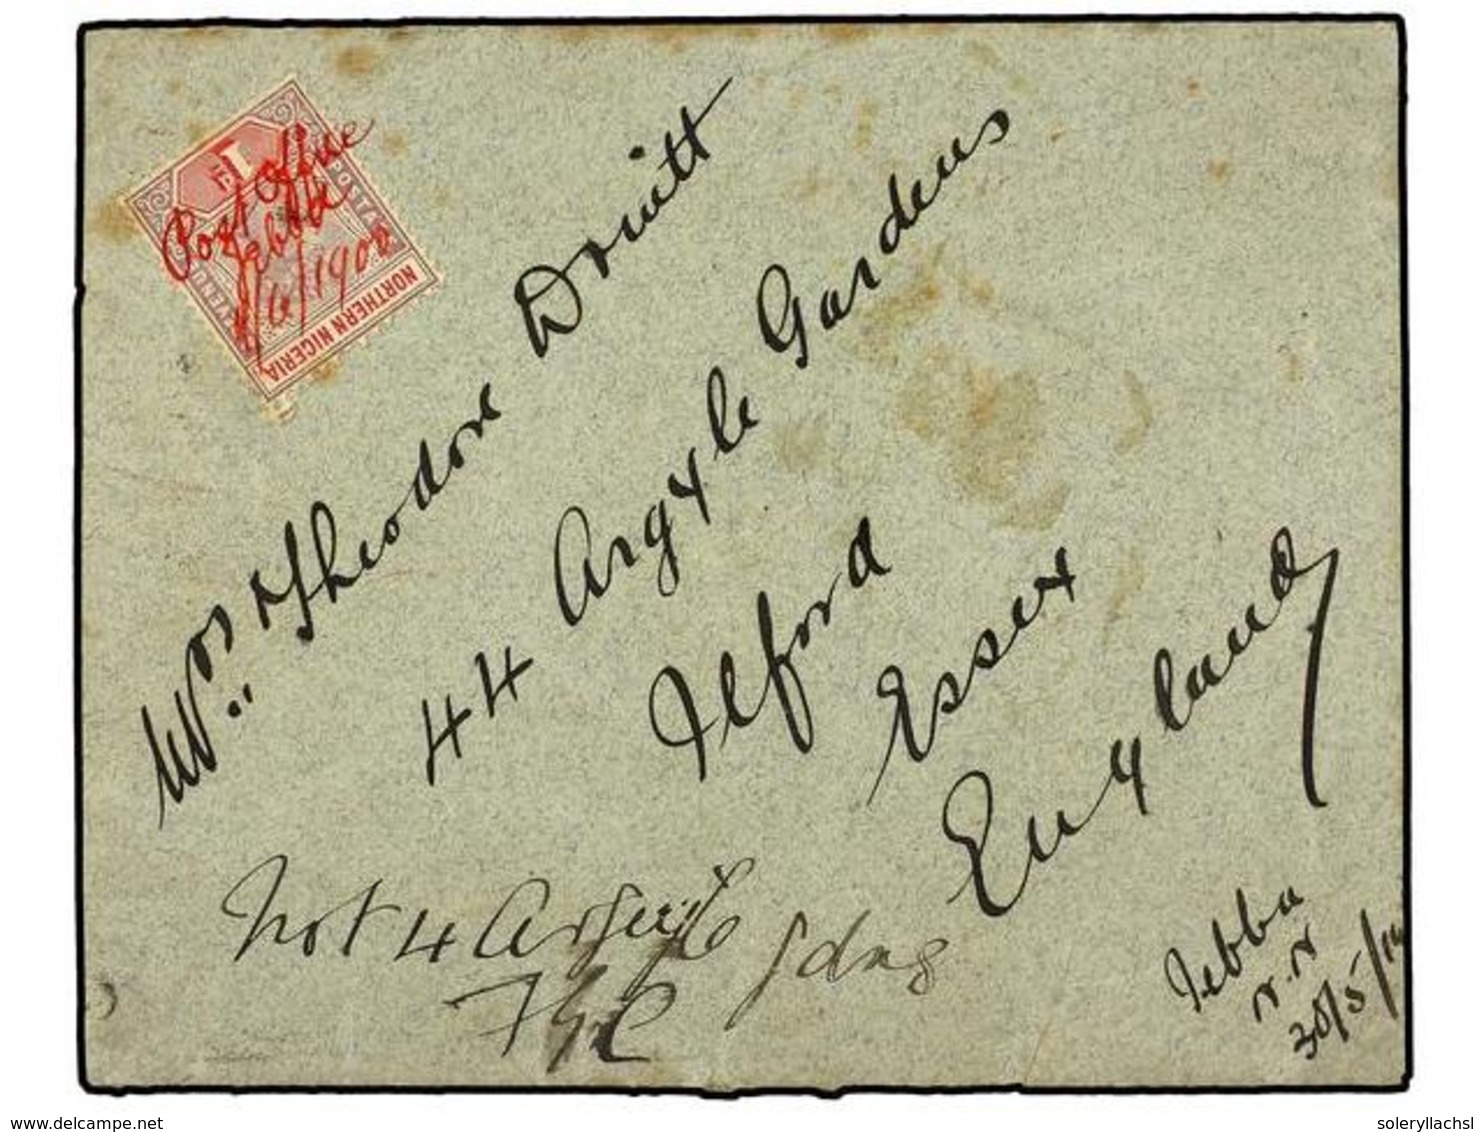 POSTAGE
1d
NORTHERN NIGERIA
Post Office
Jebba
1/6/1900
Theodore Druitt
44 Argyle Gardens
Ilford
Essex
England
Not 4 Argyle gdns
Jebba
N.N
30/5/
www.delcampe.net
soleryllachsl